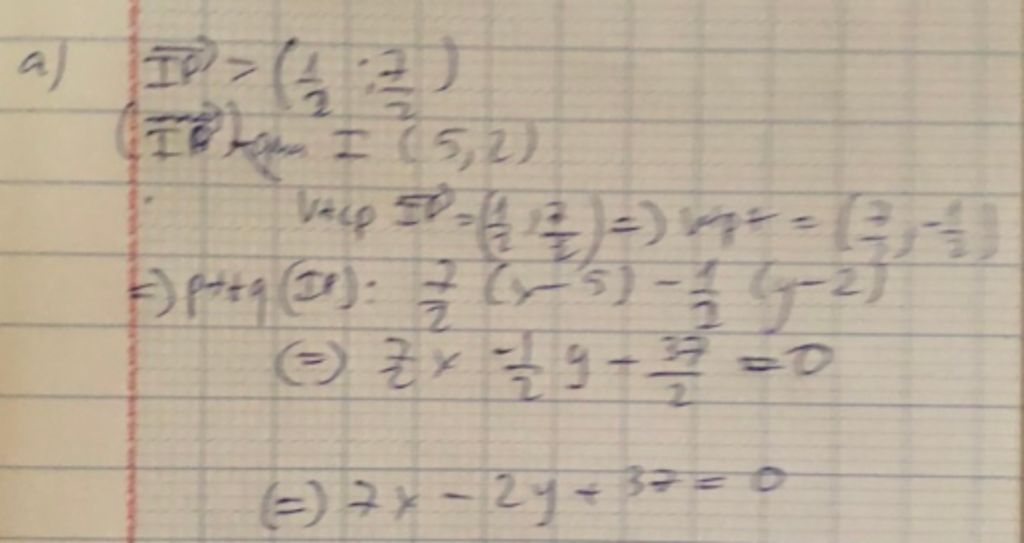 a) IP = (1/2 ; 7/2)
(IP) qua I (5,2)
vtcp IP = (1/2, 7/2) => vtpt = (7/2, -1/2)
=> pttq (IP): 7/2 (x-5) - 1/2 (y-2)
(=) 7/2 x -1/2 y - 37/2 = 0
(=) 7x - 2y + 37 = 0